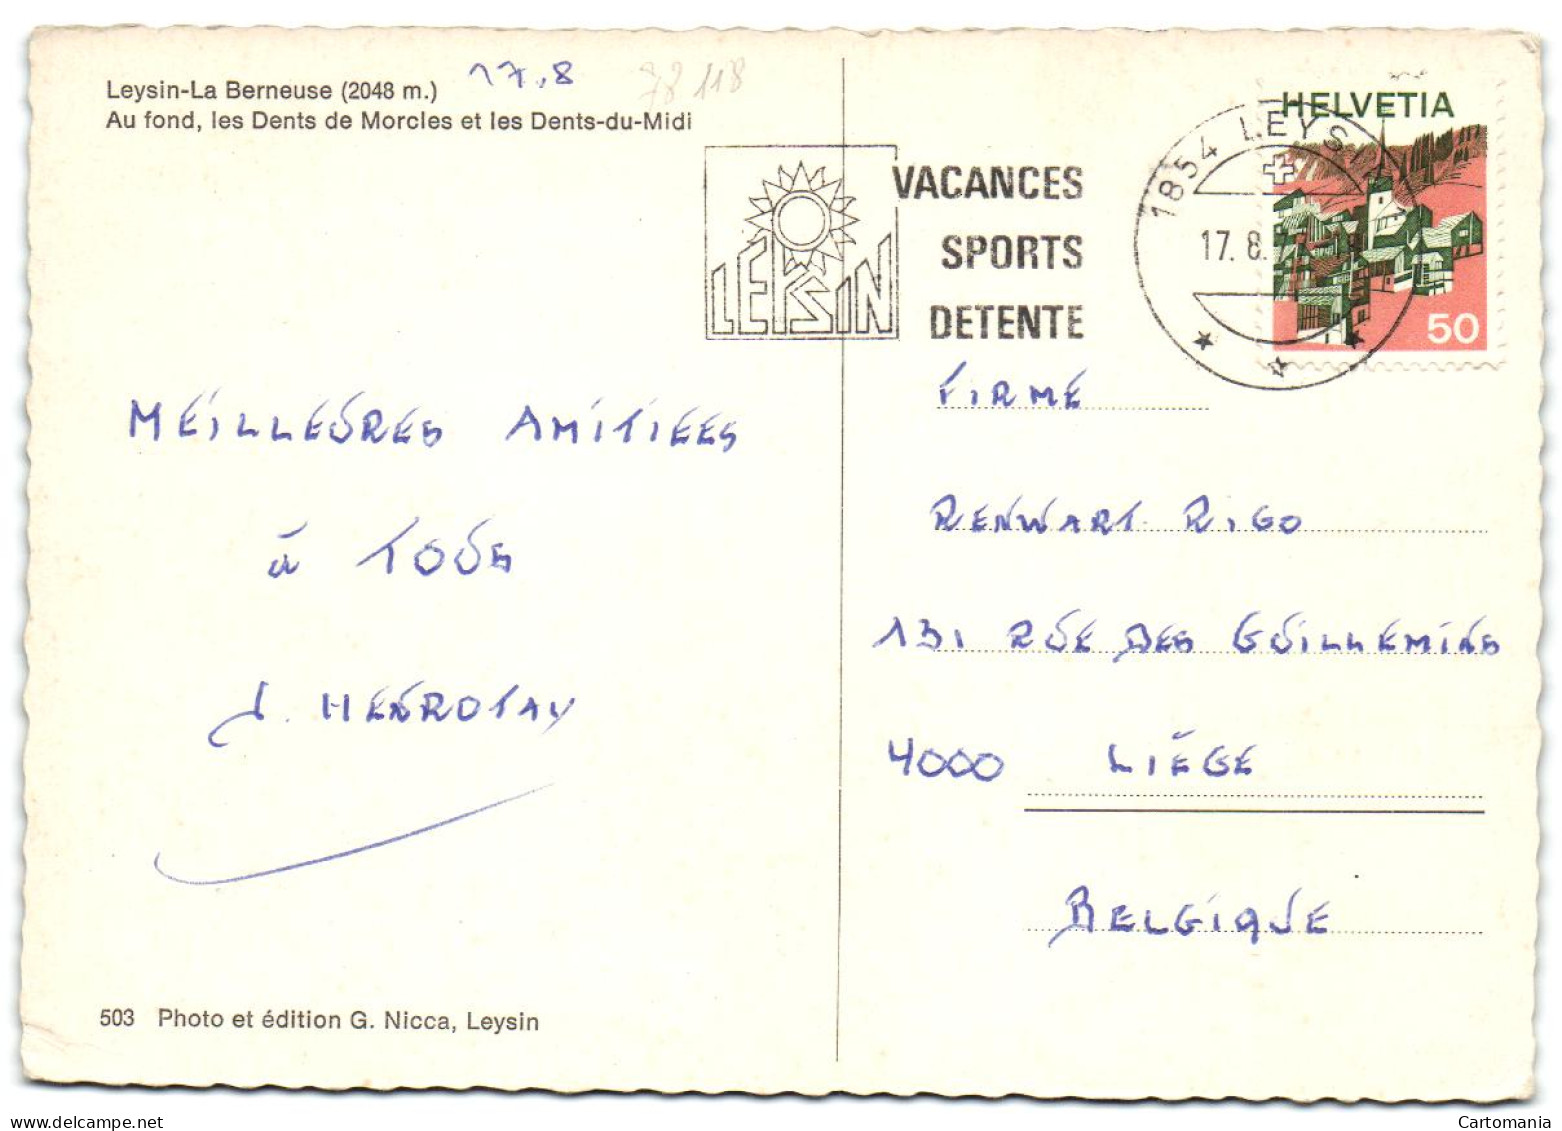 Leysin-La Berneuse (2048 m.)
17.8
78 118
Au fond, les Dents de Morcles et les Dents-du-Midi
LEYSIN
VACANCES
SPORTS
DETENTE
1854 LEYSIN
17. 8.
HELVETIA
50
MEILLEURES AMITIEES
à TOUS
J. HENROTAY
FIRME
RENWART. RIGO
131 RUE DES GUILLEMINS
4000 LIÈGE
BELGIQUE
503 Photo et édition G. Nicca, Leysin
www.delcampe.net
Cartomania